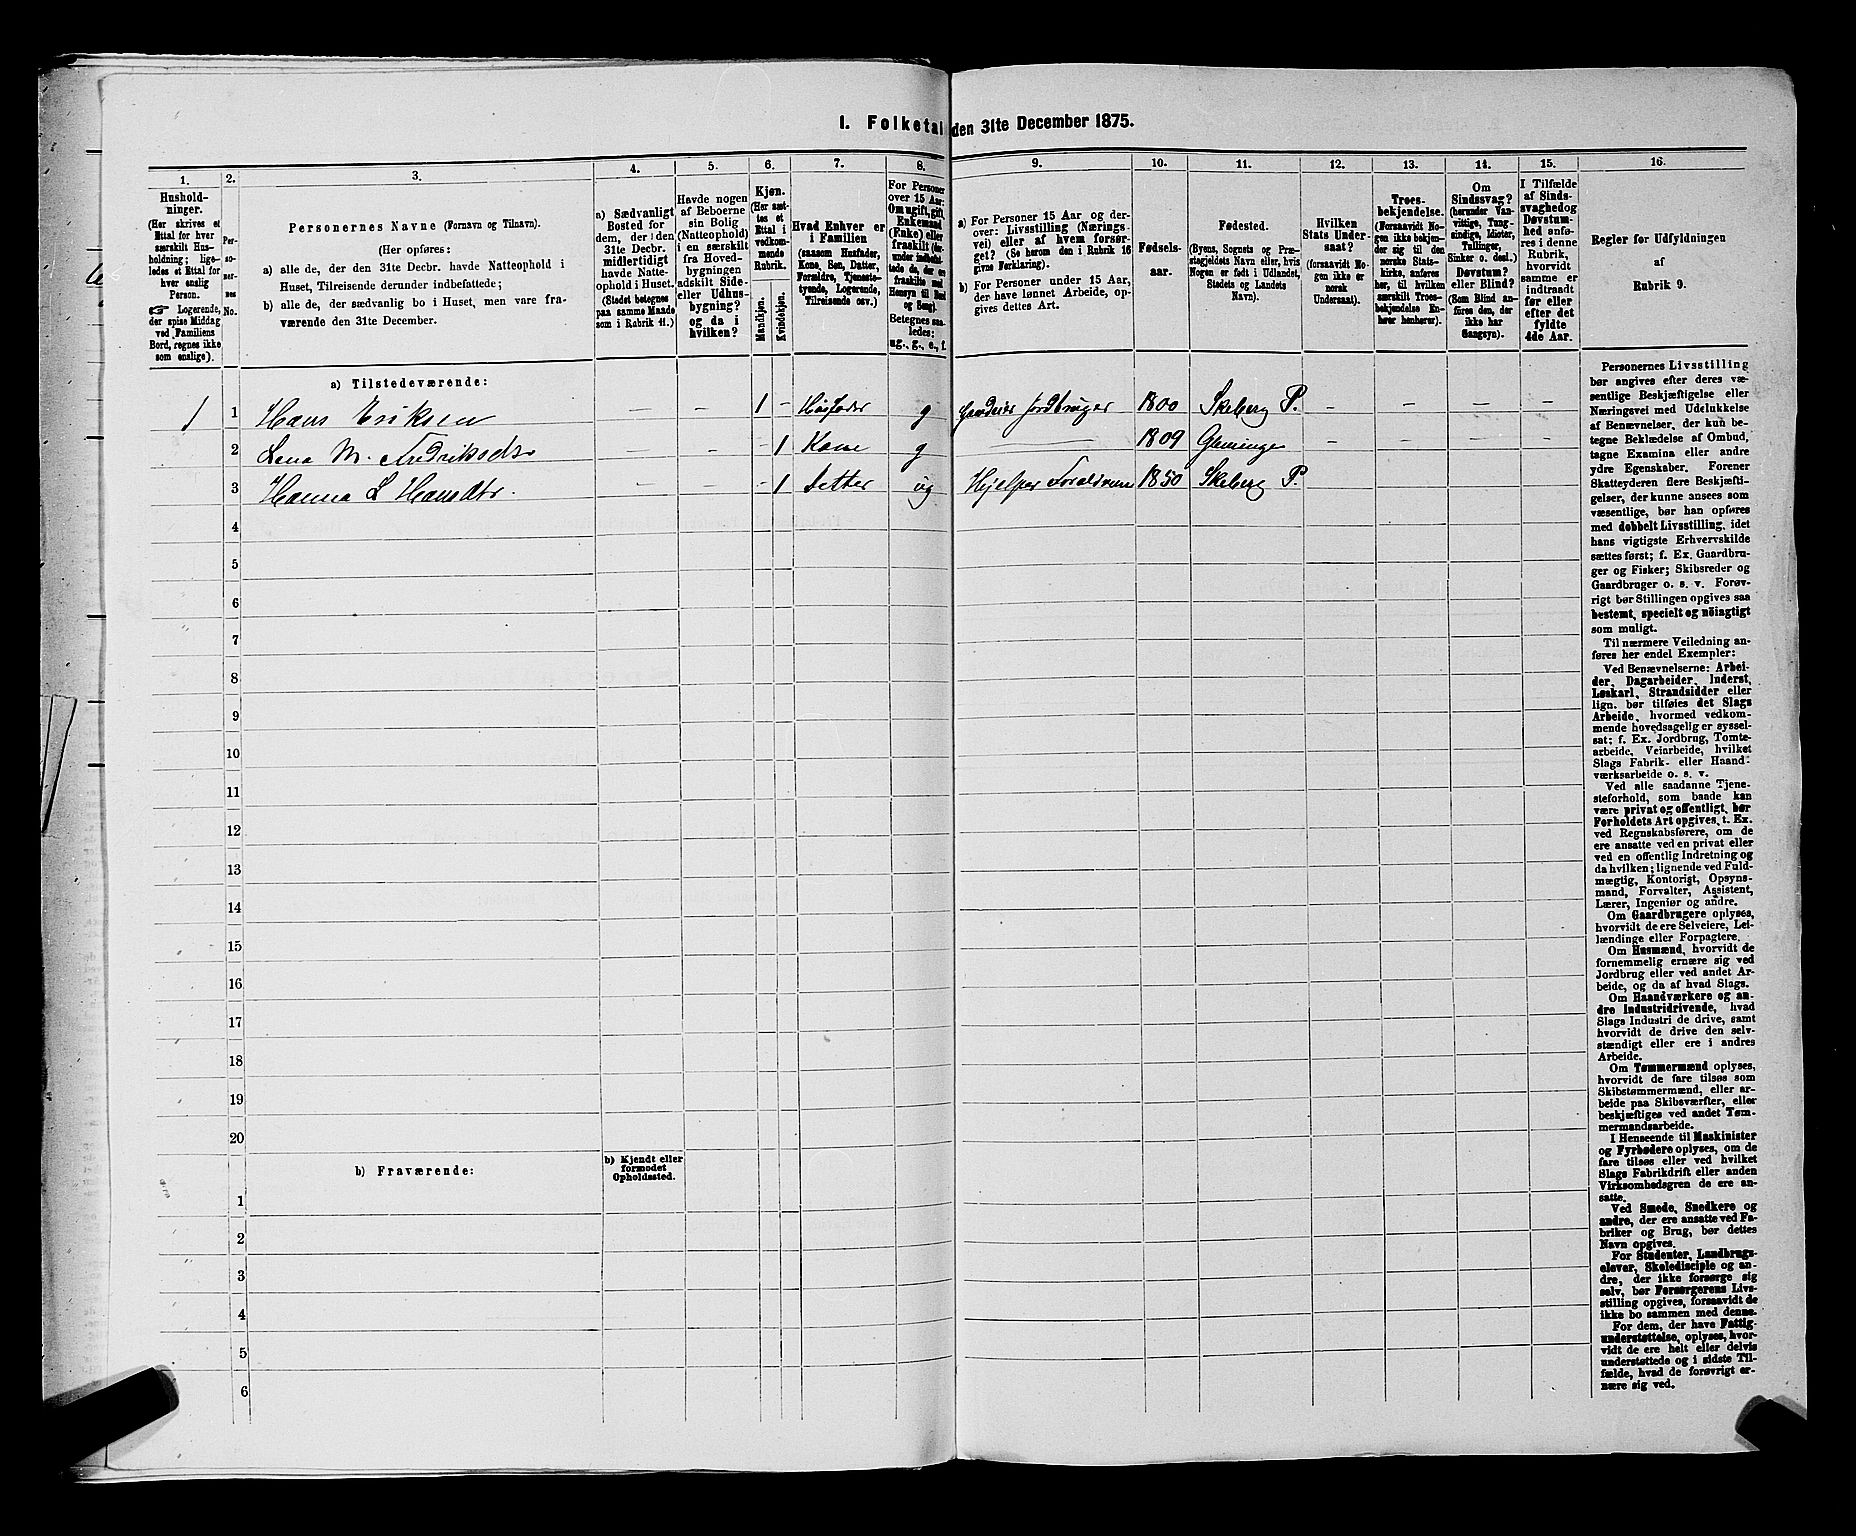 I. Folketal den 31te December 1875.
1. 2. 3. 4. 5. 6. 7. 8. 9. 10. 11. 12. 13. 14. 15. 16.
Hushold-
ninger.
(Her skrives et
Ettal for hver
særskilt Hus-
holdning; lige-
ledes et Ettal for
hver enslig
Person.
☞ Logerende,
der spise Middag
ved Familiens
Bord, regnes ikke
som enslige).
Per-
so-
ner-
nes
No.
Personernes Navne (Fornavn og Tilnavn).
(Her opføres:
a) alle de, der den 31te Decbr. havde Natteophold i
Huset, Tilreisende derunder indbefattede;
b) alle de, der sædvanlig bo i Huset, men vare fra-
værende den 31te December.
a) Sædvanligt
Bosted for
dem, der i den
31te Decbr.
midlertidigt
havde Natte-
ophold i Huset.
(Stedet betegnes
paa samme Maade
som i Rubrik 11.)
Havde nogen
af Beboerne
sin Bolig
(Natteophold)
i en særskilt
fra Hoved-
bygningen
adskilt Side-
eller Udhus-
bygning?
og da i
hvilken?
Kjøn.
(Her sæt-
tes et
Ettal i
vedkom-
mende
Rubrik.
Mandkjøn.
Kvindekjøn.
Hvad Enhver er
i Familien
(saasom Husfader,
Kone, Søn, Datter,
Forældre, Tjeneste-
tyende, Logerende,
Tilreisende osv.)
For Personer
over 15 Aar:
Om ugift, gift,
Enkemand
(Enke) eller
fraskilt (der-
under indbefat-
tede de, der ere
fraskilte med
Hensyn til Bord
og Seng).
Betegnes saa-
ledes:
ug., g., e., f.
a) For Personer 15 Aar og der-
over: Livsstilling (Nærings-
vei) eller af hvem forsør-
get? (Se herom den i Rubrik 16
givne Forklaring).
b) For Personer under 15 Aar,
der have lønnet Arbeide, op-
gives dettes Art.
Fødsels-
aar.
Fødested.
(Byens, Sognets og Præ-
stegjeldets Navn eller, hvis
Nogen er født i Udlandet,
Stedets og Landets
Navn).
Hvilken
Stats Under-
saat?
(forsaavidt No-
gen ikke er
norsk
Undersaat).
Troes-
bekjendelse.
(Forsaavidt No-
gen ikke bekjen-
der sig til den
norske Stats-
kirke, anføres
her, til hvilken
særskilt Troes-
bekjendelse En-
hver henhører).
Om
Sindssvag?
(herunder Van-
vittige, Tung-
sindige, Idioter,
Tullinger,
Sinker o. desl.)
Døvstum?
eller Blind?
(Som Blind an-
føres den, der
ikke har
Gangsyn).
I Tilfælde
af Sinds-
svaghed og
Døvstum-
hed anfø-
res i denne
Rubrik,
hvorvidt
samme er
indtraadt
før eller
efter det
fyldte
4de Aar.
Regler for Udfyldningen
af
Rubrik 9.
a) Tilstedeværende:
1 1 Hans Eriksen — — 1 - Husfader g Jordbruger 1800 Skeberg P. — — — —
2 Lena M. — — - 1 Kone g — 1809 Glemminge — — — —
3 Hanna L Hansdtr. — - 1 Datter ug Hjelper Foraldrene 1850 Skeberg P.
4
5
6
7
8
9
10
11
12
13
14
15
16
17
18
19
20
b) Fraværende:
b) Kjendt eller
formodet
Opholdssted.
1
2
3
4
5
6
Personernes Livsstilling
bør angives efter deres væ-
sentlige Beskjæftigelse eller
Næringsvei med Udelukkelse
af Benævnelser, der kun be-
tegne Beklædelse af Ombud,
tagne Examina eller andre
ydre Egenskaber. Forener
Skatteyderen flere Beskjæfti-
gelser, der kunne ansees som
væsentlige, bør han opføres
med dobbelt Livsstilling, idet
hans vigtigste Erhvervskilde
sættes først; f. Ex. Gaardbru-
ger og Fisker; Skibsreder og
Gaardbruger o. s. v. Forøv-
rigt bør Stillingen opgives saa
bestemt, specielt og nöiagtigt
som muligt.
Til nærmere Veiledning an-
føres her endel Exempler:
Ved Benævnelserne: Arbei-
der, Dagarbeider, Inderst,
Løskarl, Strandsidder eller
lign. bør tilføies det Slags
Arbeide, hvormed vedkom-
mende hovedsagelig er syssel-
sat; f. Ex. Jordbrug, Tomte-
arbeide, Veiarbeide, hvilket
Slags Fabrik- eller Haand-
værksarbeide o. s. v.
Ved alle saadanne Tjene-
steforhold, som baade kan
være privat og offentligt, bør
Forholdets Art opgives, t. Ex.
ved Regnskabsførere, om de
ere ansatte ved en privat eller
ved en offentlig Indretning og
da hvilken; lignende ved Fuld-
mægtig, Kontorist, Opsyns-
mand, Forvalter, Assistent,
Lærer, Ingeniør og andre.
Om Gaardbrugere oplyses,
hvorvidt de ere Selveiere, Lei-
lændinge eller Forpagtere.
Om Husmænd, hvorvidt de
fornemmelig ernære sig ved
Jordbrug eller ved andet Ar-
beide, og da af hvad Slags.
Om Haandværkere og an-
dre Industridrivende, hvad
Slags Industri de drive, samt
hvorvidt de drive den selv-
stændigt eller ere i andres
Arbeide.
Om Tømmermænd oplyses,
hvorvidt de fare tilsøs som
Skibstømmermænd, eller ar-
beide paa Skibsværfter, eller
beskjæftiges ved andet Tøm-
mermandsarbeide.
I Henseende til Maskinister
og Fyrbødere oplyses, om de
fare tilsøs eller ved hvilket
Slags Fabrikdrift eller anden
Virksomhedsgren de ere an-
satte.
Ved Smede, Snedkere og
andre, der ere ansatte ved Fa-
briker og Brug, bør dettes
Navn opgives.
For Studenter, Landbrugs-
elever, Skoledisciple og an-
dre, der ikke forsørge sig
selv, bør Forsørgerens Livs-
stilling opgives, forsaavidt de
ikke bo sammen med denne.
For dem, der have Fattig-
understøttelse, oplyses, hvor-
vidt de ere helt eller delvis
understøttede og i sidste Til-
fælde, hvad de forøvrigt er-
nære sig ved.